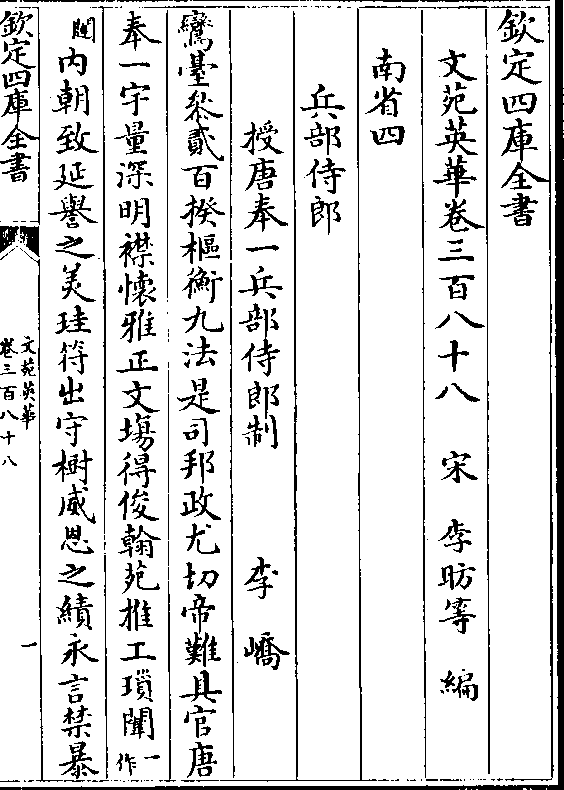 欽定四庫全書
文苑英華卷三百八十八 宋 李昉等 編
南省四
兵部侍郎
授唐奉一兵部侍郎制 李嶠
鸞臺叅貳百揆樞衡九法是司邦政尤切帝難具官唐
奉一宇量深明襟懷雅正文場得俊翰苑推工瑣闈一作
闥内朝致延譽之美珪符出守樹威恩之績永言禁暴
欽定四庫全書
文苑英華
卷三百八十八
一